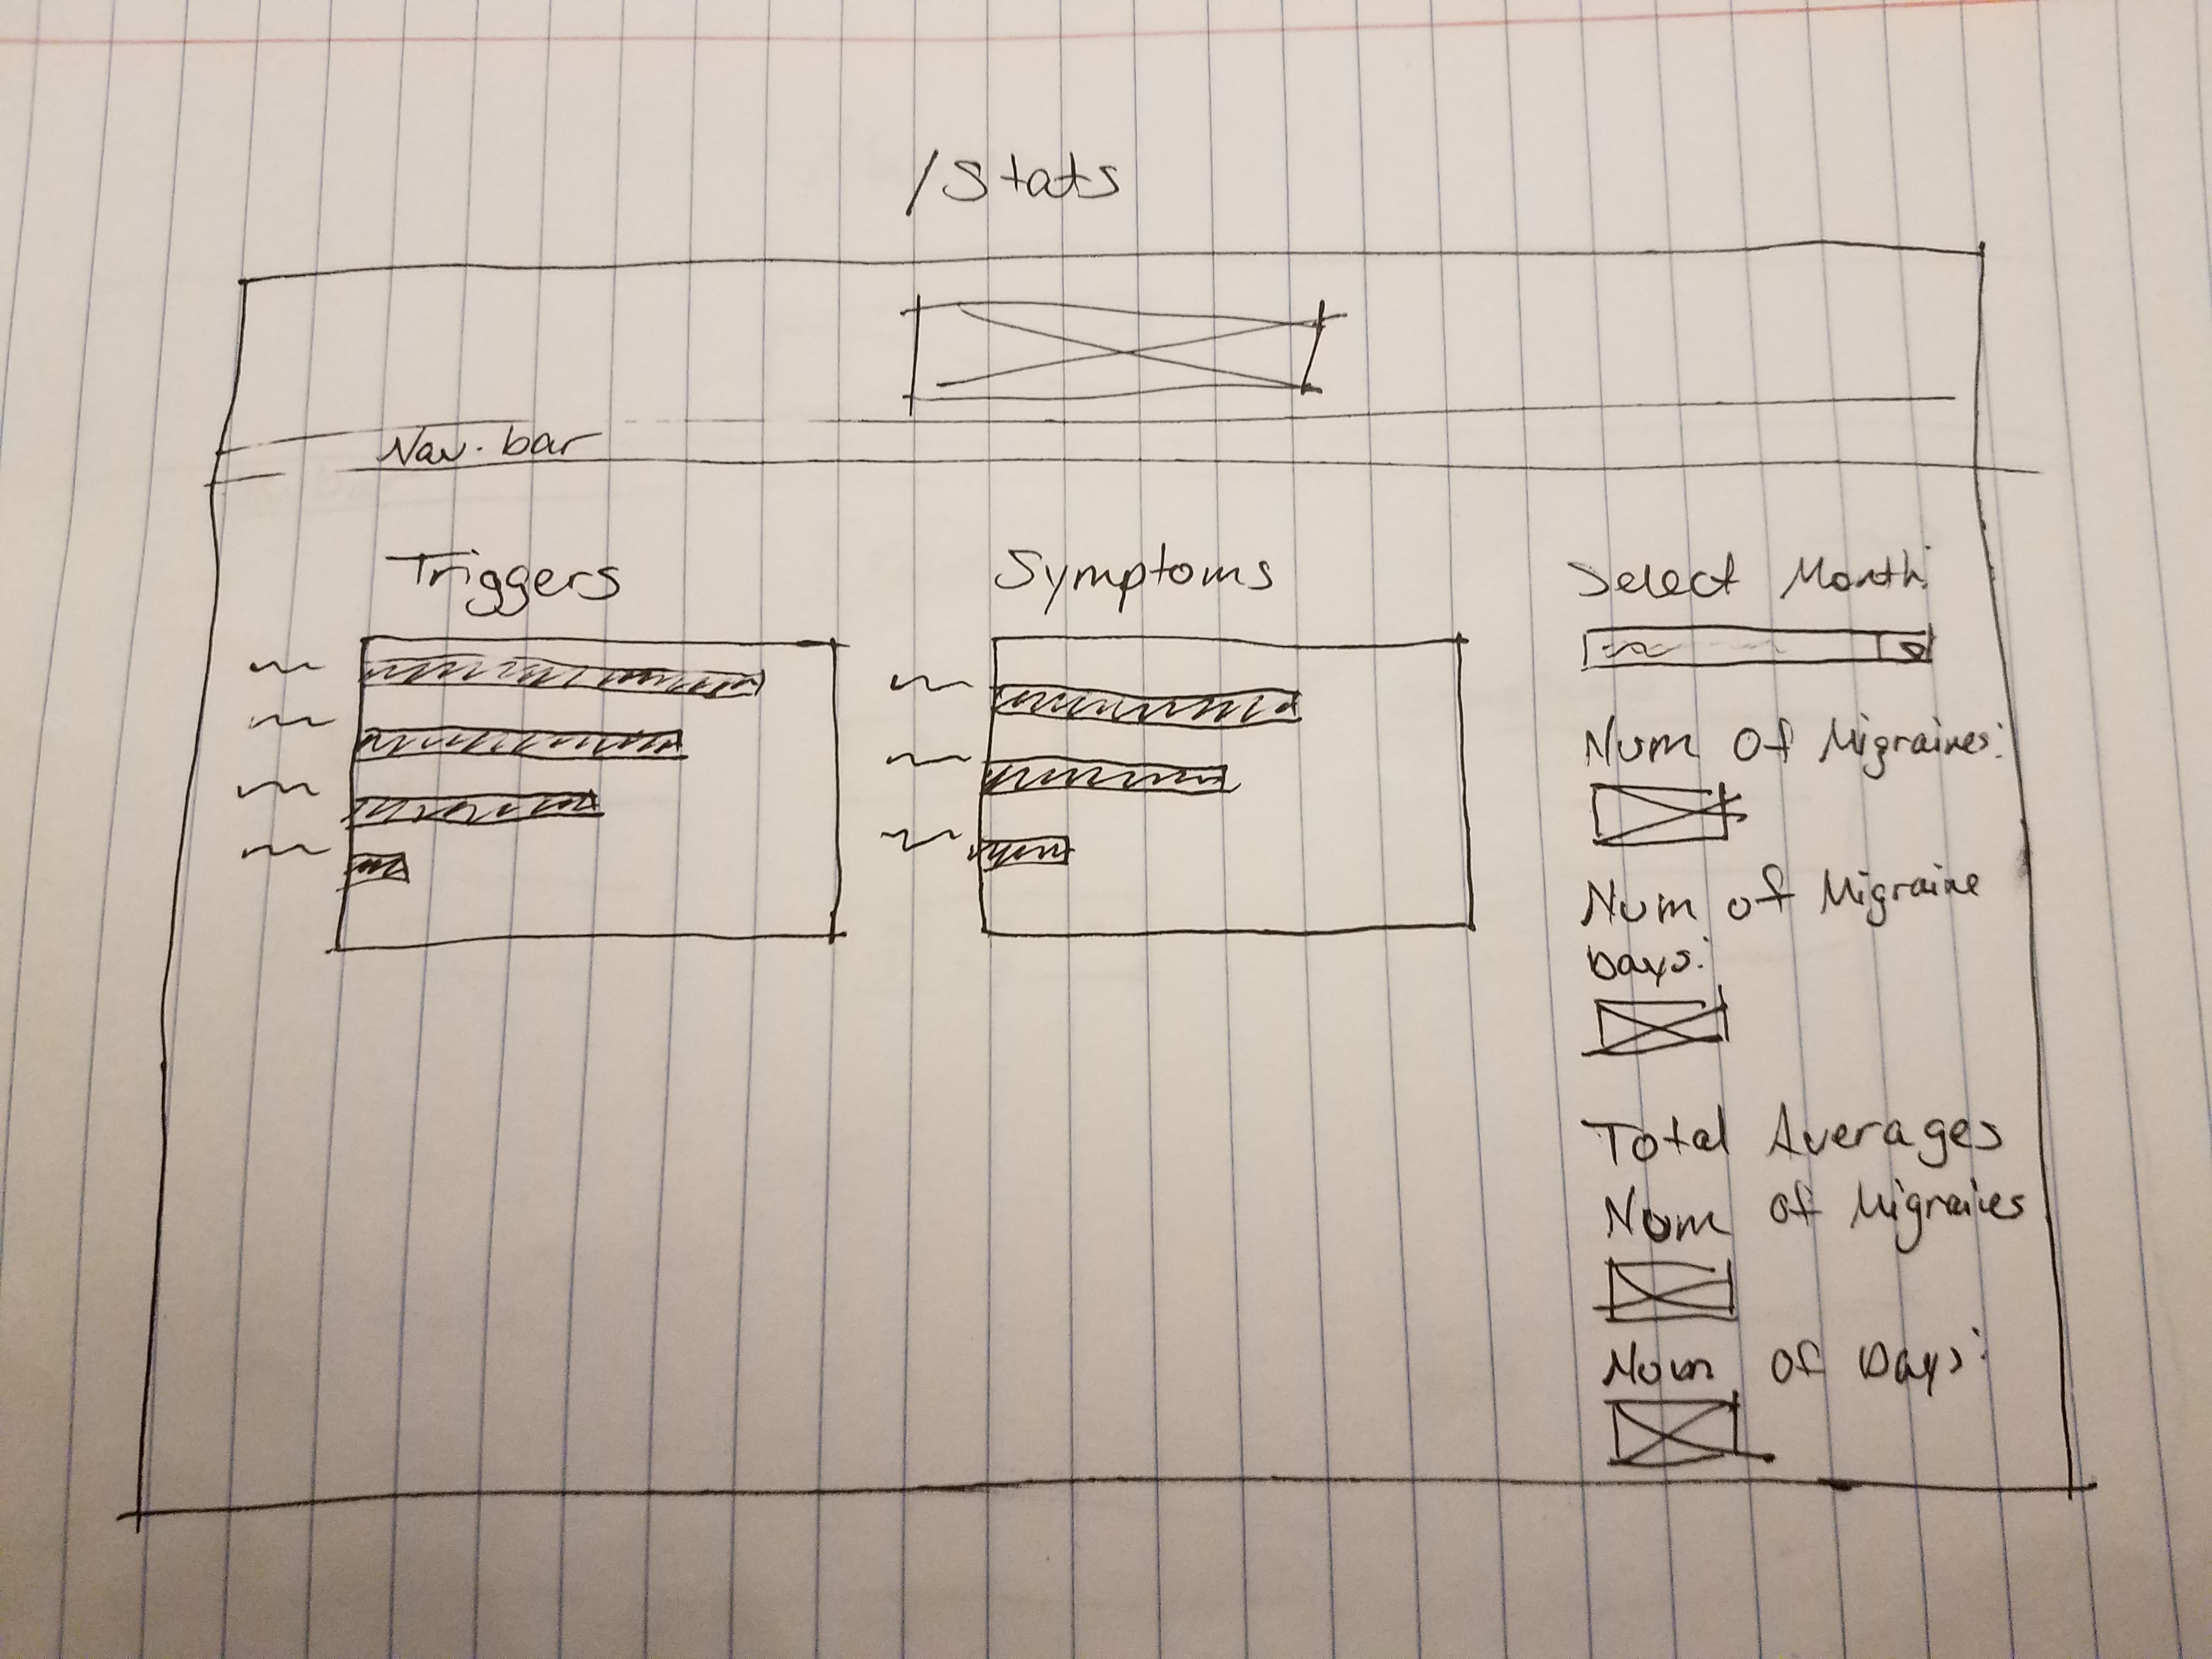 /Stats
Nav. bar
Triggers
Symptoms
Select Month:
Num Of Migraines:
Num of Migraine
Days:
Total Averages
Num of Migraines
Num Of Days: